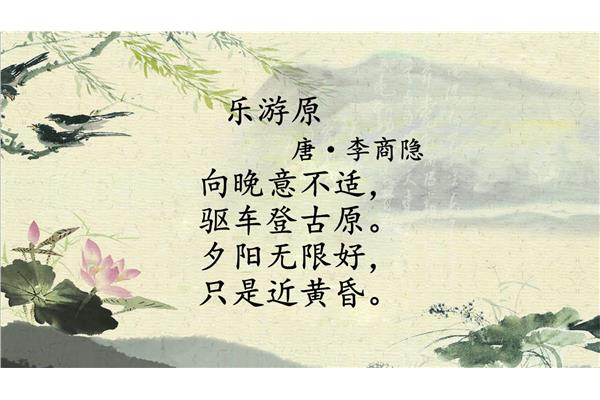 乐游原
唐·李商隐
向晚意不适，
驱车登古原。
夕阳无限好，
只是近黄昏。